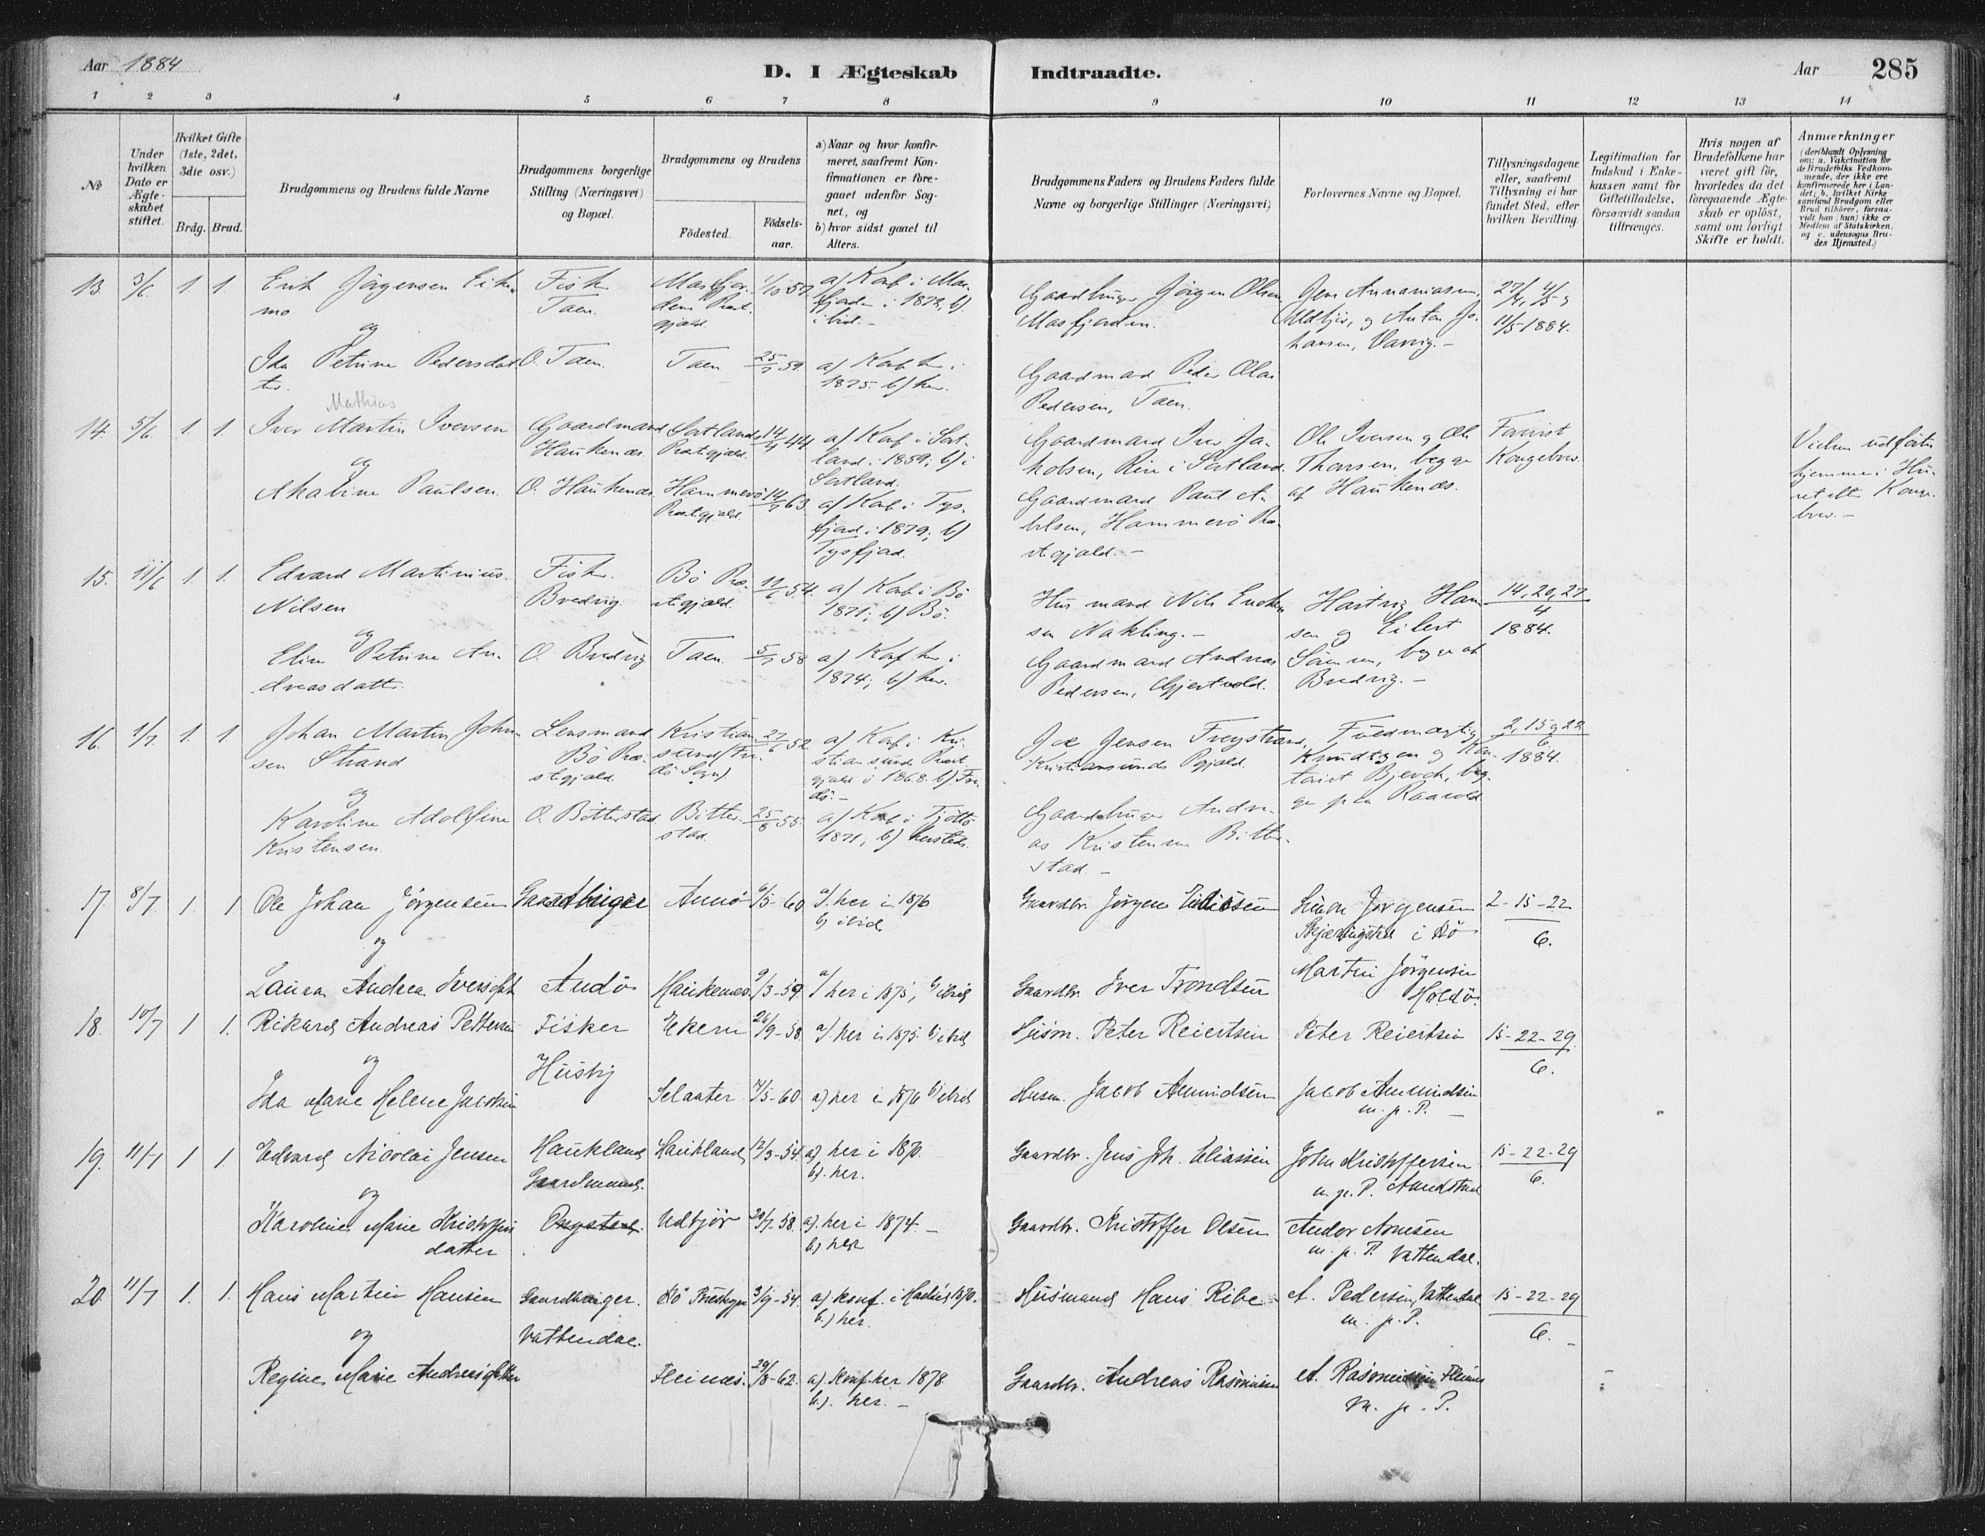 Aar 1884
D. I Ægteskab Indtraadte.
Aar 285
1 2 3 4 5 6 7 8 9 10 11 12 13 14
No
Under hvilken Dato er Ægteskabet stiftet.
Hvilket Gifte (1ste, 2det, 3die osv.)
Brdg. Brud.
Brudgommens og Brudens fulde Navne
Brudgommens borgerlige Stilling (Næringsvei) og Bopæl.
Brudgommens og Brudens
Födested.
Födsels-aar.
a) Naar og hvor konfirmeret, saafremt Konfirmationen er foregaaet udenfor Sognet, og
b) hvor sidst gaaet til Alters.
Brudgommens Faders og Brudens Faders fulde Navne og borgerlige Stillinger (Næringsvei)
Forlovernes Navne og Bopæl.
Tillysningsdagene eller, saafremt Tillysning ei har fundet Sted, efter hvilken Bevilling.
Legitimation for Indskud i Enkekassen samt for Giftetilladelse, forsaavidt saadan tiltrænges.
Hvis nogen af Brudefolkene har været gift för, hvorledes da det foregaaende Ægteskab er oplöst, samt om lovligt Skifte er holdt.
Anmærkninger
13. 3/6 1. 1 Erik Jörgensen
mo
og
Ida Petrine Pedersdatter.
Fisk. Taen.
O. Taen. Taen 25/7 59
a) Konf. i 1873, b) ibid.
a) Konf. her i 1875. b) her.
Gaardbruger Jörgen Olsen Masfjorden.
Gaardmand Peder Olai Pedersen, Taen.
Jens Annaniassen, og Anton Johansen,
27/4, 4/5 og 11/5 1884.
14. 5/6. 1. 1. Iver Martin Iversen
Mathias
og
Akaline Paulsen.
Gaardmand Haukenæs
O. Haukenæs.
Sortland Præstgjæld. 14/9 44
Hammerö Præstgjæld. 14/7 63.
a) Konf. i Sortland i 1859; b) i Sortland.
a) Konf. i Tysfjord i 1879; b) Tysfjord.
Gaardmand Iver Jakobsen, Rise i Sortland.
Gaardmand Paul Abelsen, Hammerö Præstgjæld. -
Ole Iversen og Ole Thorsen, begge af Haukenæs.
Kongebrev.
Vielsen udfört hjemme i Huset efter Kongebrev. -
15. 11/6 1. 1. Edvard Martinius Nilsen
og
Elen Petrine Andreasdatter.
Fisker. Bredvig.
O. Bredvig
Bö Præstegjæld. 11/6 54.
Taen. 5/7 58
a) Konf. i Bö 1871; b) Bö.
a) Konf. her i 1874; b) her.
Husmand Nils Enoksen Nakling. -
Gaardmand Andreas Pedersen, Gjertvold.
Hartvig Hansen og Eilert Sörensen, begge af Bredvig. -
14, 20, 27/4 1884.
16. 1/7. 1. 1 Johan Martin Johnsen Strand
og
Karoline Adolfine Kristensen
Lensmand Bö Præstegjæld.
O. Bitterstad
Kristiansund (Fredö Sogn) 27/6 52.
Bitterstad. 25/8 55.
a) Konf. i Kristiansunds Præstgjæld i 1868. b) Fredö. -
a) Konf. i Tjöttö 1871, b) hersteds.
Joe Jensen Freystrand, Kristiansunds Pgjæld.
Gaardbruger Andreas Kristensen Bitterstad. -
Fuldmægtig Knudtzen og Kontorist Bjerch, begge paa Raavold
2, 15 og 22/6 1884.
17. 8/7 1. 1. Ole Johan Jörgensen
og
Laura Andrea Iversdat
Gaardbruger
Andö
Annö 6/5 - 60
Haukenes 9/3 - 59.
a/ her i 1876 b) ibid
a/ her i 1875, b/ ibid
Gaardbr. Jörgen Eliassen
Gaardbr. Iver Trondsen
Simon Jörgensen Skjæringstad i Bö
Martin Jörgensen Holdö.
2 - 15 - 22/6.
18. 10/7 1 1. Rikard Andreas Pettersen
og
Ida Marie Helene Jacobsen
Fisker
Husby
Ekern 26/9 - 58.
Selaater. 7/5 - 60.
a/. her i 1875. b/ ibid
a) her i 1876 b/ ibid
Husm. Peter Reiertsen
Husm. Jacob Amundsen
Peter Reiertsen
Jacob Amundsen
m. p. P. -
15 - 22 - 29/6.
19. 11/7 1 1. Edvard Nicolai Jensen
og
Karoline Marie Kristoffersdatter
Haukland Gaardmand.
Haukland 12/3 - 54.
Udbjör 20/7. 58.
a). her i 1870. b). her.
a). her i 1874 - b) her
Gaardbr. Jens Joh. Eliassen
Gaardbr. Kristoffer Olsen
John Kristoffersen m. p. P.
Andor Arnesen m. p. P. Vattendal.
15 - 22 - 29/6.
20. 11/7 1. 1. Hans Martin Hansen
og
Regine Marie Andreasdatter
Gaardbruger.
Vattendal.
3/9 - 54.
Fleinæs. 29/8 - 62.
a) konf. i Hadsel 1870. b.) her.
a) Konf. her 1878 b). her. -
Husmand Hans Ribe
Gaardbr. Andreas Rasmussen
A. Pedersen, Vattendal m. p. P.
A. Rasmussen Fleines m. p. P.
15 - 22 - 29/6. -